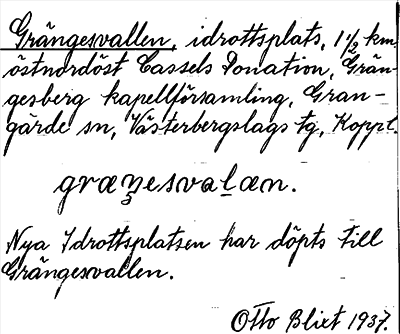 Grängesvallen, idrottsplats, 1 1/2 km
östnordöst Cassels Donation, Grän-
gesberg kapellförsamling, Gran-
gärde sn, Västerbergslags tg, Koppl.
Nya Idrottsplatsen har döpts till
Grängesvallen.
Otto Blixt 1937.